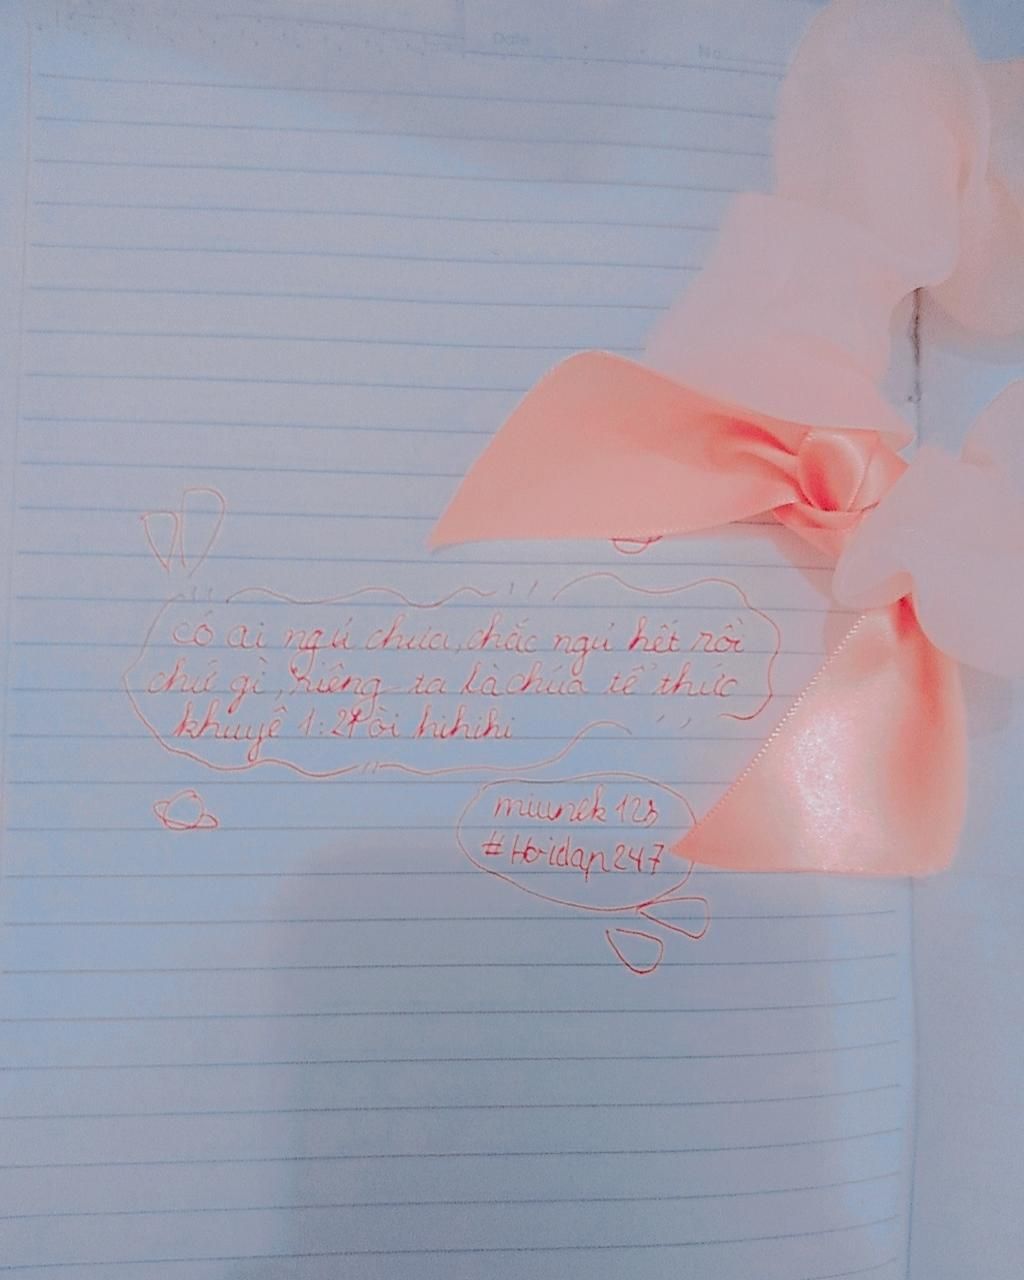 Date
No
có ai ngủ chưa, chắc ngủ hết rồi
chứ gì, riêng ta là chúa tể thức
khuyê 1:24 òi hihihi
miunek 123
#Hoidap247